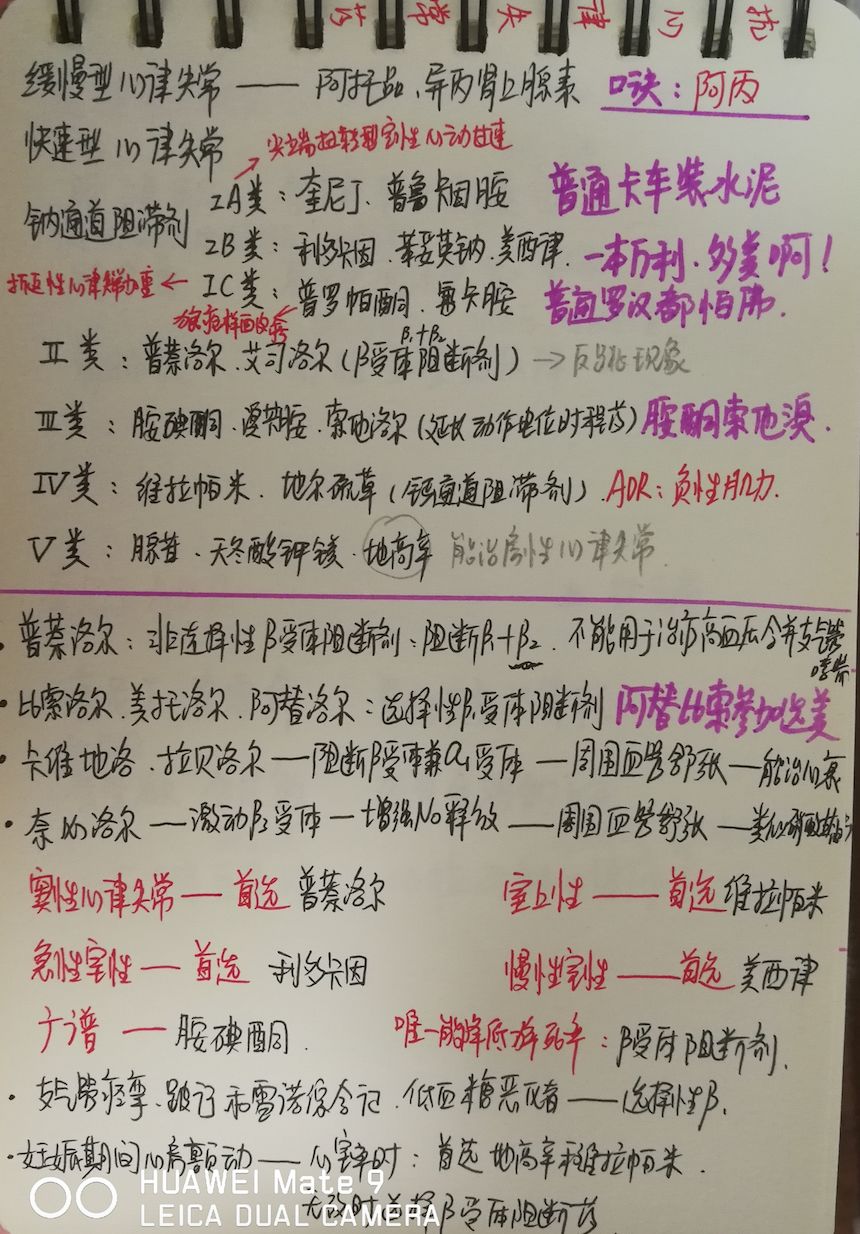 抗心律失常药
缓慢型心律失常——阿托品、异丙肾上腺素 口诀：阿丙
快速型心律失常
尖端扭转型室性心动过速
钠通道阻滞剂
IA类：奎尼丁、普鲁卡因胺 普通卡车装水泥
IB类：利多卡因、苯妥英钠、美西律 一本万利、多美啊！
IC类：普罗帕酮、氟卡胺 普通罗汉都怕佛.
抗心律失常加重←
狼疮样面
β₁+β₂
Ⅱ类：普萘洛尔、艾司洛尔（β受体阻断剂）→反跳现象
Ⅲ类：胺碘酮、索他洛尔（延长动作电位时程药）胺酮索他
IV类：维拉帕米、地尔硫䓬（钙通道阻滞剂）.ADR：负性肌力.
V类：腺苷、天冬酸钾镁、地高辛 能治房性心律失常.
·普萘洛尔：非选择性β受体阻断剂：阻断β₁+β₂. 不能用于治疗高血压合并支气管
哮喘
·比索洛尔、美托洛尔、阿替洛尔：选择性β₁受体阻断剂 阿替比索参加选美
·卡维地洛、拉贝洛尔——阻断β受体兼α₁受体——周围血管舒张——能治心衰
·奈必洛尔——激动β₃受体—增强NO释放——周围血管舒张——类似硝酸甘油
窦性心律失常——首选 普萘洛尔
室上性——首选 维拉帕米
急性室性——首选 利多卡因
慢性室性——首选 美西律
广谱——胺碘酮.
唯一能降低猝死率：β受体阻断剂.
·支气管痉挛、跛行和雷诺综合征、低血糖恶化者——选择性β₁
·妊娠期间心房颤动——心室率时：首选 地高辛和维拉帕米.
无效时选择β受体阻断药
HUAWEI Mate 9
LEICA DUAL CAMERA